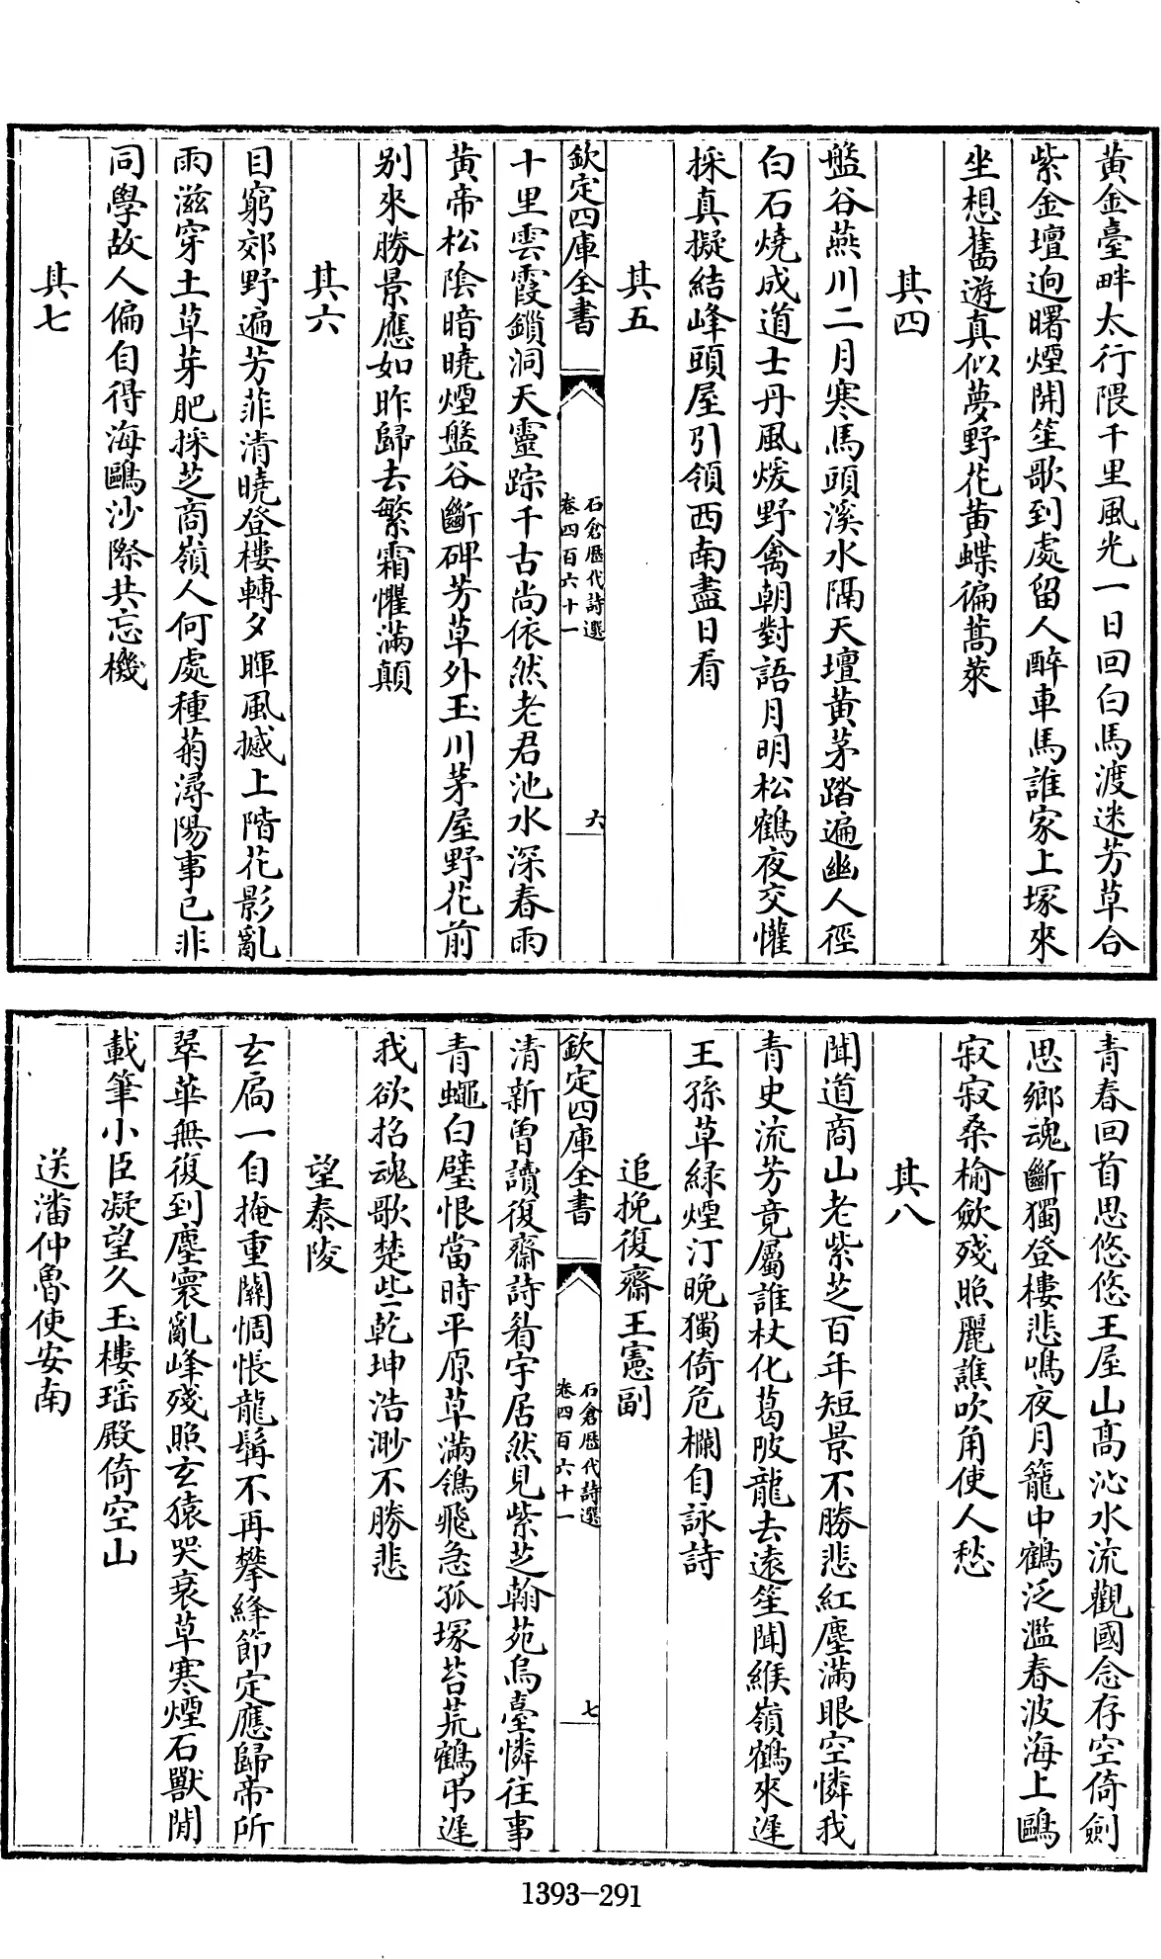 黃金臺畔太行隈千里風光一日回白馬渡迷芳草合
紫金壇迥曙煙開笙歌到處留人醉車馬誰家上塚來
坐想舊遊真似夢野花黃蝶徧蒿萊
其四
盤谷燕川二月寒馬頭溪水隔天壇黃茅踏遍幽人徑
白石燒成道士丹風煖野禽朝對語月明松鶴夜交懽
採真擬結峰頭屋引領西南盡日看
其五
欽定四庫全書
石倉歷代詩選
卷四百六十一
六
十里雲霞鎻洞天靈踪千古尚依然老君池水深春雨
黃帝松陰暗曉煙盤谷斷碑芳草外玉川茅屋野花前
別來勝景應如昨歸去繁霜懼滿顛
其六
目窮郊野遍芳菲清曉登樓轉夕暉風撼上階花影亂
雨滋穿土草芽肥採芝商嶺人何處種菊潯陽事已非
同學故人偏自得海鷗沙際共忘機
其七
青春回首思悠悠王屋山高沁水流觀國念存空倚劍
思鄉魂斷獨登樓悲鳴夜月籠中鶴泛濫春波海上鷗
寂寂桑榆斂殘照麗譙吹角使人愁
其八
聞道商山老紫芝百年短景不勝悲紅塵滿眼空憐我
青史流芳竟屬誰杖化葛陂龍去遠笙聞緱嶺鶴來遲
王孫草綠煙汀晚獨倚危欄自詠詩
追挽復齋王憲副
欽定四庫全書
石倉歷代詩選
卷四百六十一
七
清新曽讀復齋詩眉宇居然見紫芝翰苑烏臺憐往事
青蠅白璧恨當時平原草滿鴒飛急孤塚苔荒鶴弔遲
我欲招魂歌楚些乾坤浩渺不勝悲
望泰陵
玄扃一自掩重關惆悵龍髯不再攀絳節定應歸帝所
翠華無復到塵寰亂峰殘照玄猿哭衰草寒煙石獸閒
載筆小臣凝望久玉樓瑤殿倚空山
送潘仲魯使安南
1393-291